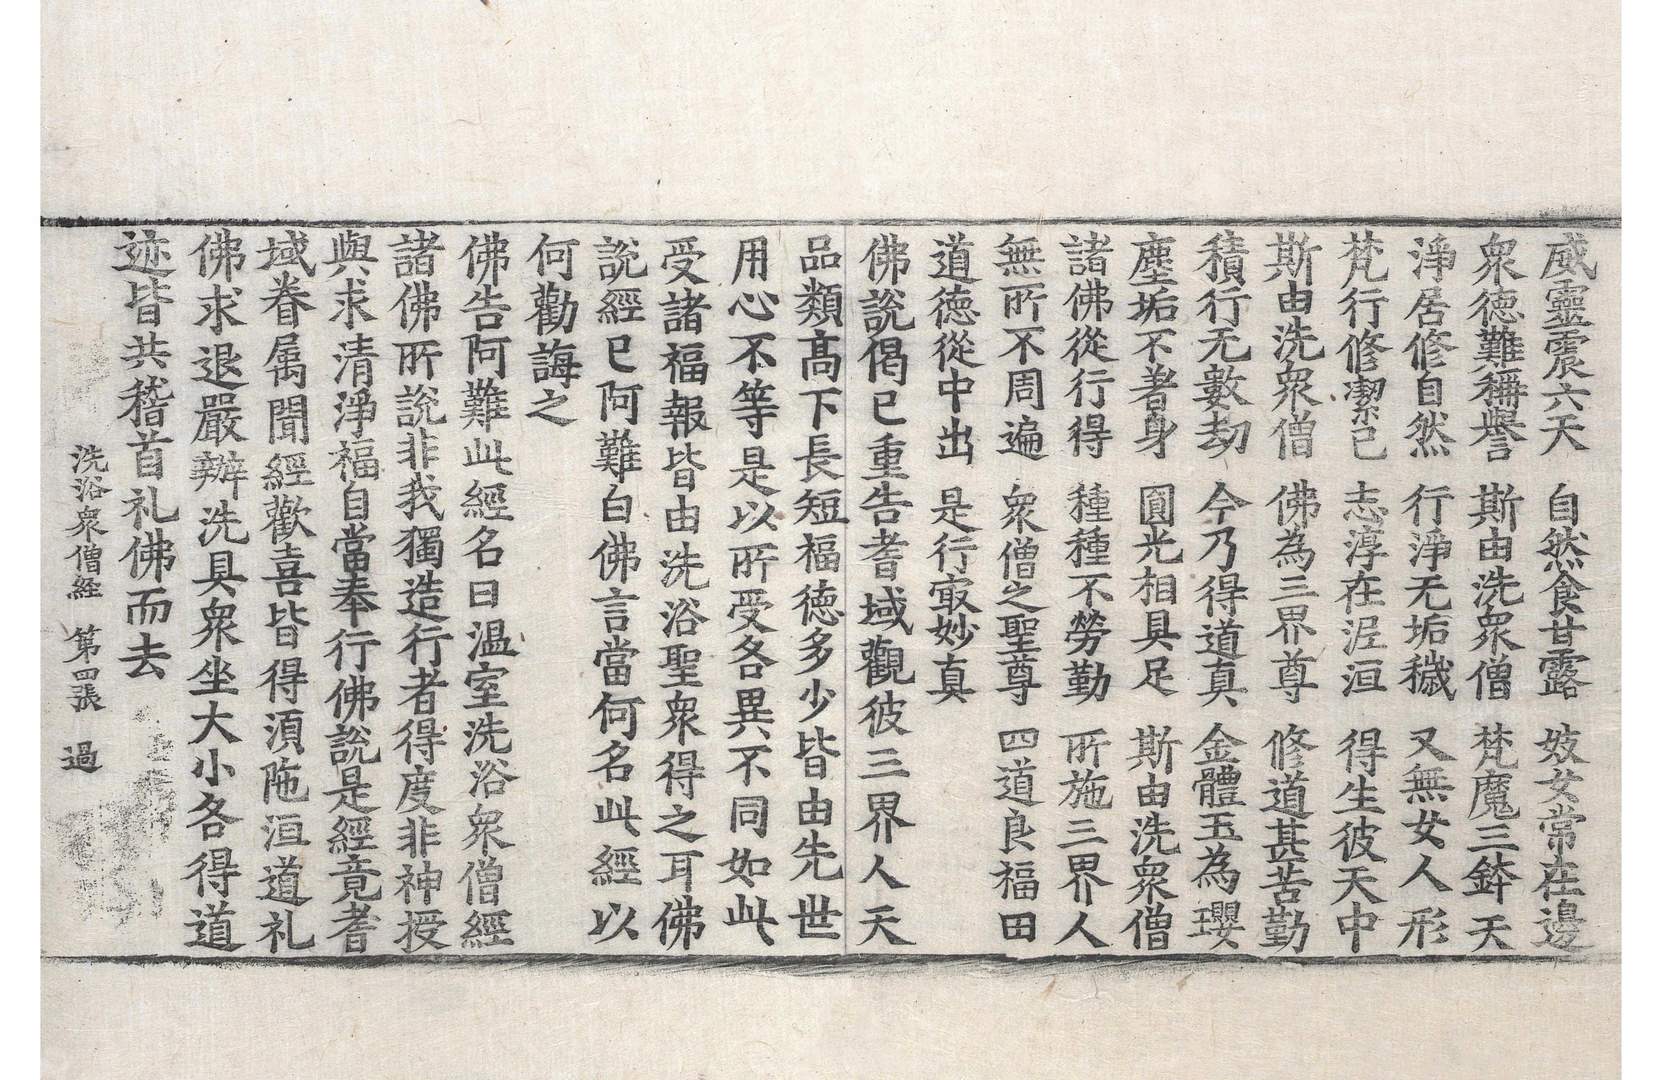 威靈震六天　自然食甘露　妓女常在邊
衆德難稱譽　斯由洗衆僧　梵魔三鉢天
淨居修自然　行淨无垢穢　又無女人形
梵行修潔已　志淳在泥洹　得生彼天中
斯由洗衆僧　佛為三界尊　修道甚苦勤
積行无數劫　今乃得道真　金體玉為瓔
塵垢不著身　圓光相具足　斯由洗衆僧
諸佛從行得　種種不勞勤　所施三界人
無所不周遍　衆僧之聖尊　四道良福田
道德從中出　是行㝡妙真
佛說偈已重告耆域觀彼三界人天
品類髙下長短福德多少皆由先世
用心不等是以所受各異不同如此
受諸福報皆由洗浴聖衆得之耳佛
說經已阿難白佛言當何名此經以
何勸誨之
佛告阿難此經名曰温室洗浴衆僧經
諸佛所說非我獨造行者得度非神授
與求清淨福自當奉行佛說是經竟耆
域眷属聞經歡喜皆得湏陁洹道礼
佛求退嚴辦洗具衆坐大小各得道
迹皆共稽首礼佛而去
洗浴衆僧経　第四張　過